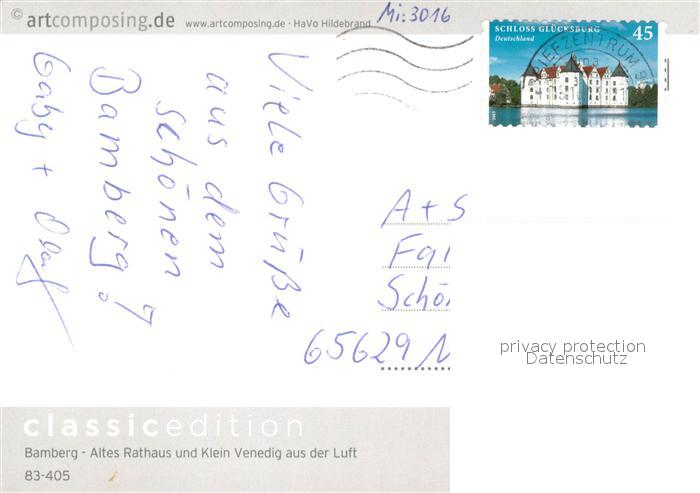 © artcomposing.de www.artcomposing.de · HaVo Hildebrand
Mi: 3016
SCHLOSS GLÜCKSBURG 45
Deutschland
BRIEFZENTRUM
Viele Grüße
aus dem
schönen
Bamberg!
Gaby + Olaf
A + S
Schö
65629 N
privacy protection
Datenschutz
classicedition
Bamberg - Altes Rathaus und Klein Venedig aus der Luft
83-405